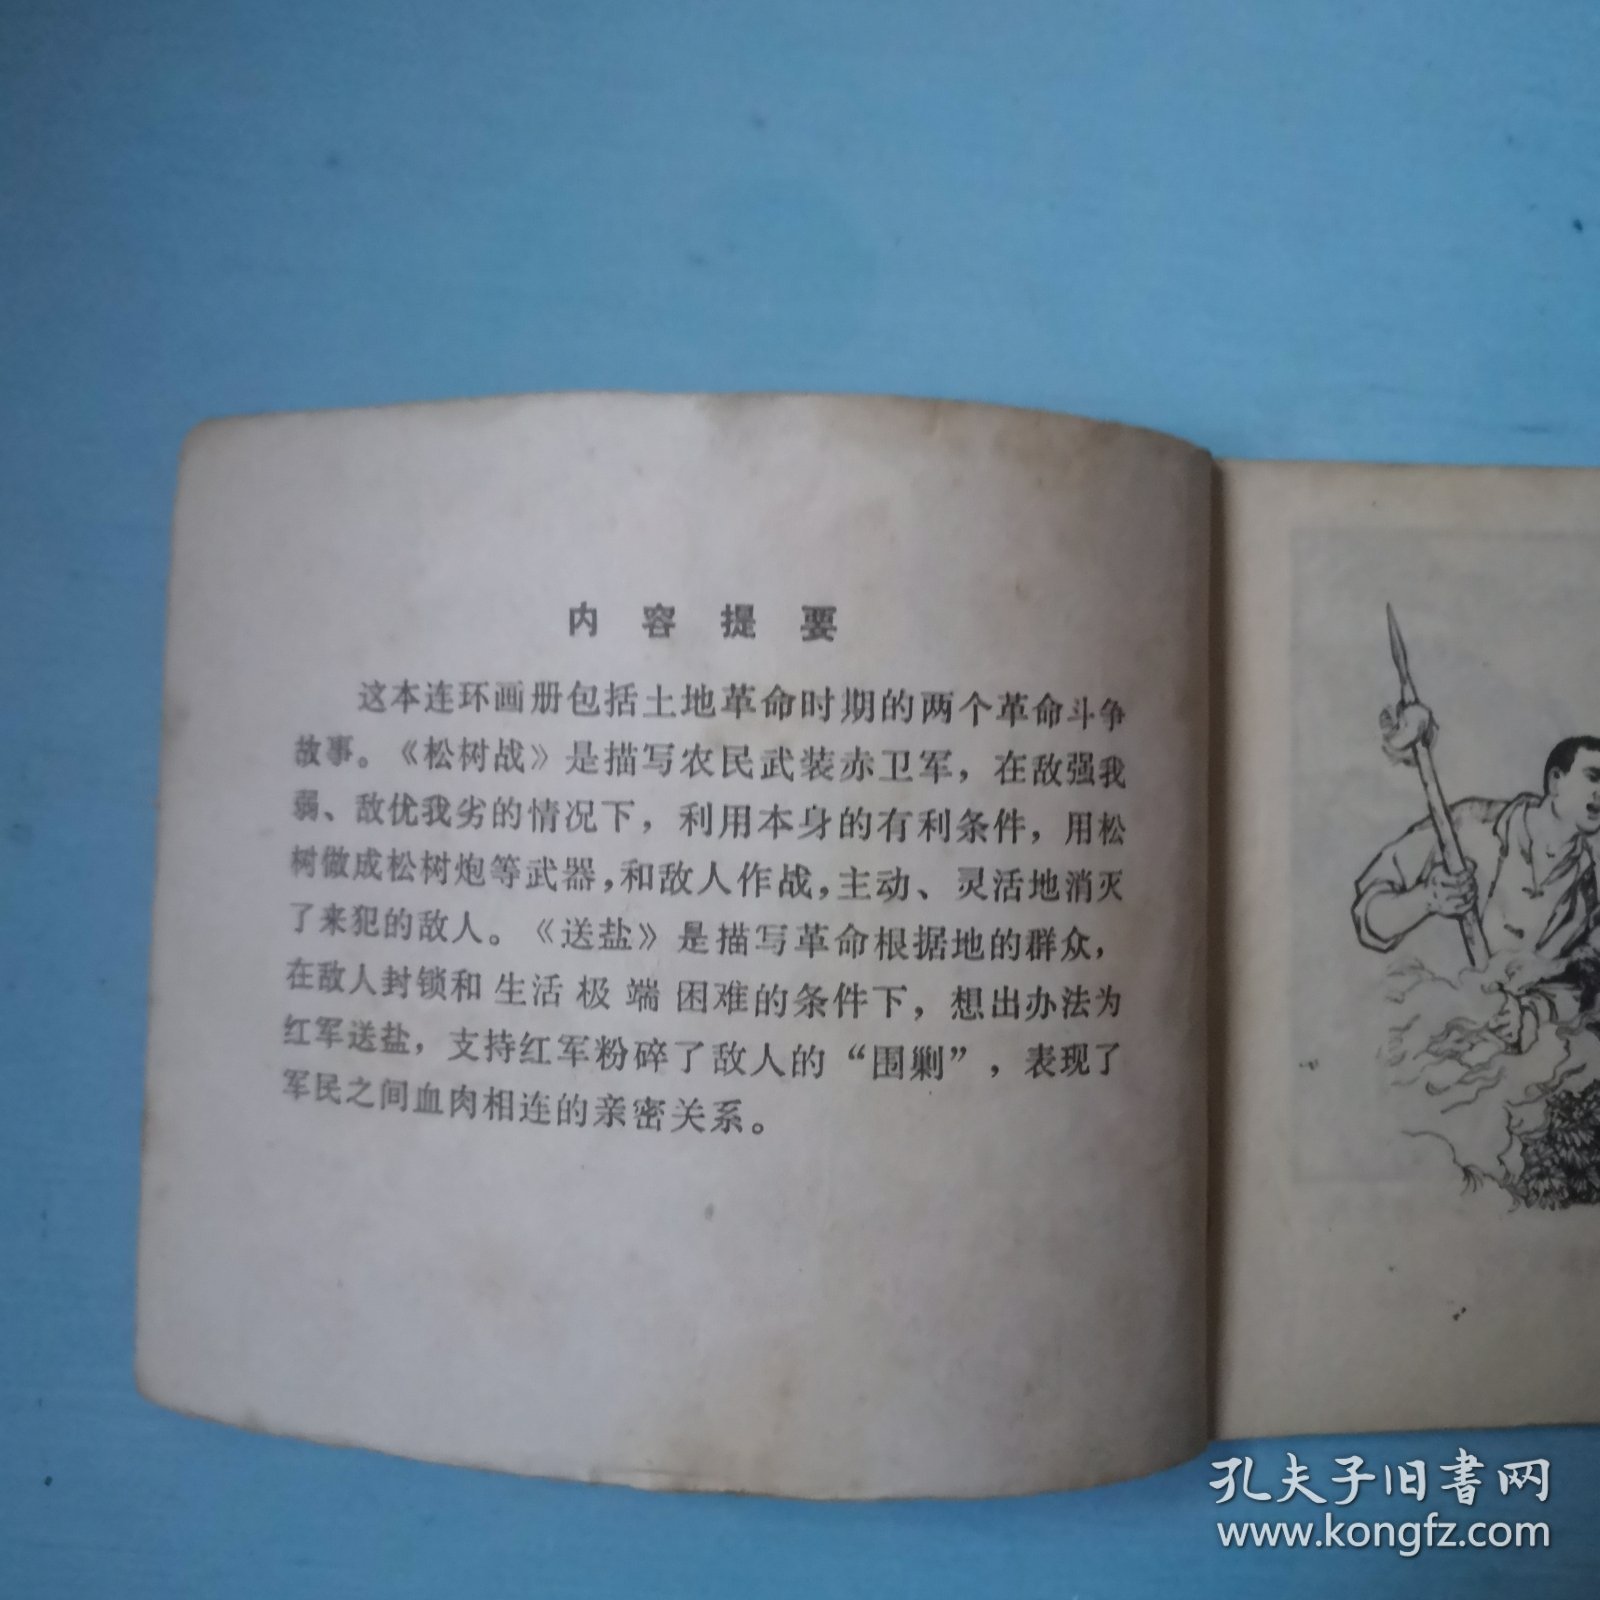 内容提要
这本连环画册包括土地革命时期的两个革命斗争
故事。《松树战》是描写农民武装赤卫军，在敌强我
弱、敌优我劣的情况下，利用本身的有利条件，用松
树做成松树炮等武器，和敌人作战，主动、灵活地消灭
了来犯的敌人。《送盐》是描写革命根据地的群众，
在敌人封锁和生活极端困难的条件下，想出办法为
红军送盐，支持红军粉碎了敌人的“围剿”，表现了
军民之间血肉相连的亲密关系。
孔夫子旧书网
www.kongfz.com